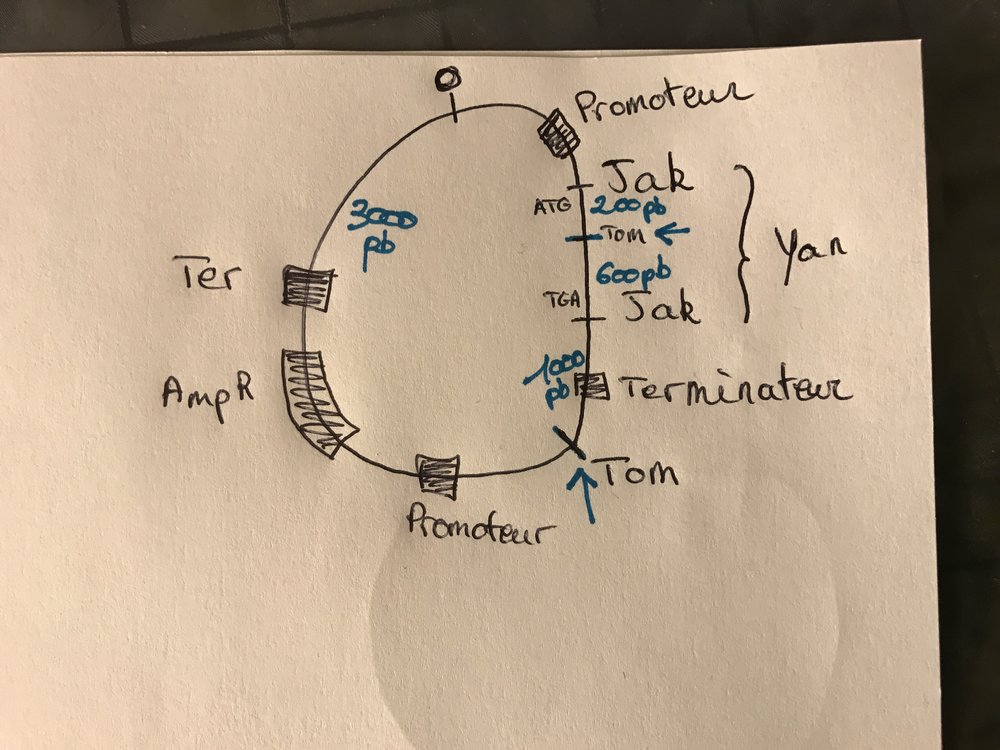 O
Promoteur
Jak
ATG 200pb
Tom
Yan
600pb
TGA
Jak
3000
pb
Ter
1000
pb
Terminateur
AmpR
Tom
Promoteur